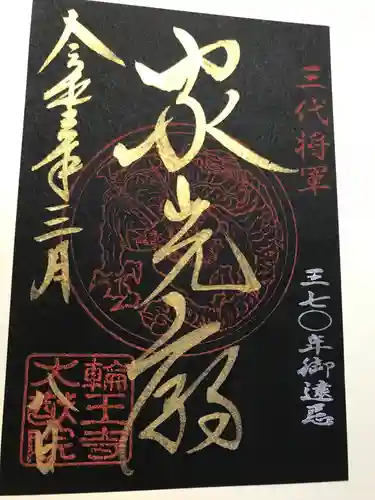 三代将軍
三七〇年御遠忌
家光廟
令和三年三月
八日
輪王寺
大猷院